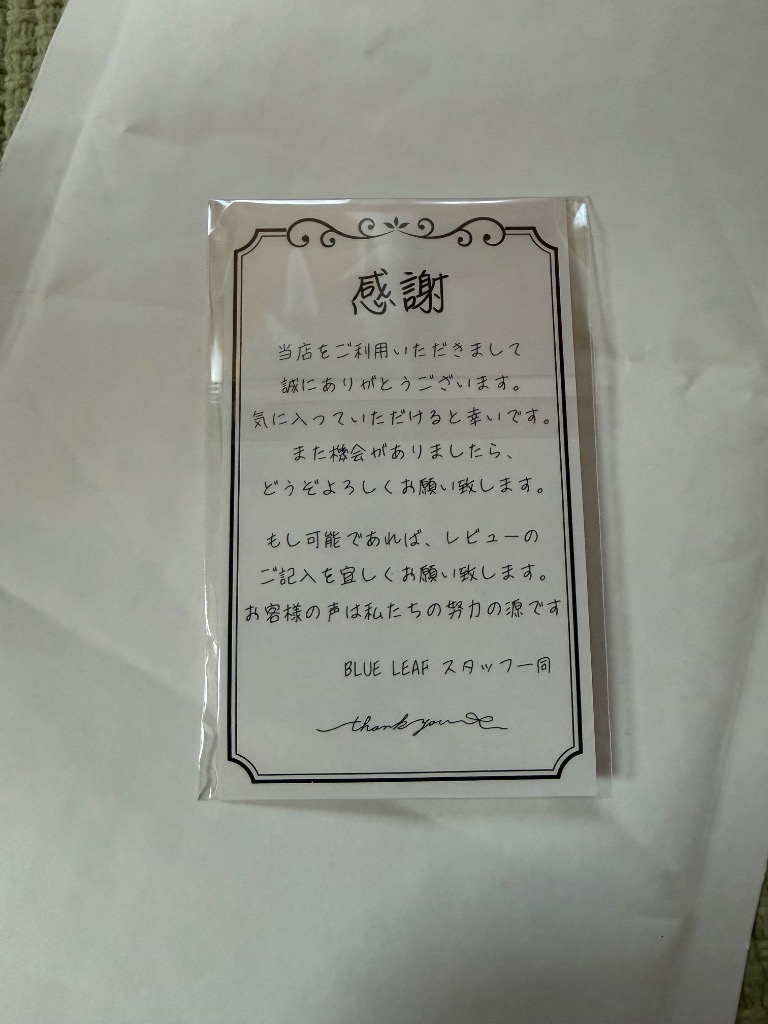 感謝
当店をご利用いただきまして
誠にありがとうございます。
気に入っていただけると幸いです。
また機会がありましたら、
どうぞよろしくお願い致します。
もし可能であれば、レビューの
ご記入を宜しくお願い致します。
お客様の声は私たちの努力の源です
BLUE LEAF スタッフ一同
thank you